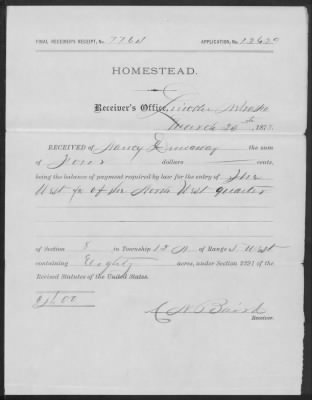 FINAL RECEIVER'S RECEIPT, No. 7764 APPLICATION, No.
HOMESTEAD.
Receiver's Office, Lincoln Nebraska
March 26th 187
RECEIVED OF Nancy the sum
of Four dollars cents,
being the balance of payment required by law for the entry of The
West ½ of the North West quarter
of Section 8 in Township 12 N of Range West
containing Eighty acres, under Section 2291 of the
Revised Statutes of the United States.
$4.00
N Baird
Receiver.